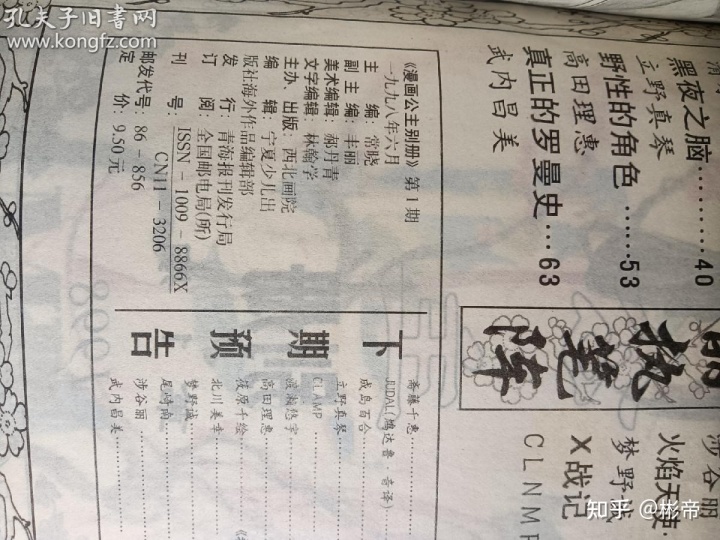 孔夫子旧书网
www.kongfz.com
黑夜之脑………40
立野真琴
野性的角色……53
高田理惠
真正的罗曼史…63
武内曰美
《漫画公主别册》第1期
一九九八年六月
主编:常晓
副主编:丰丽
美术编辑:郝丹青
文字编辑:林翰学
主办、出版:西北画院
编辑:宁夏少儿出
版社海外作品编辑部
发行:青海报刊发行局
订阅:全国邮电局(所)
刊号:ISSN-1009-8866X
CN11-3206
邮发代号:86-856
定价:9.50元
执笔阵
涉谷丽
火焰天使
梦野
X战记
CLNMP
下期预告
斋藤千惠……
JUDAL(维达鲁·音译)
成岛百合……
立野真琴……
CLAMP……
高田理惠……
筱原千绘……
北川美幸……
梦野
尾崎南……
涉谷丽……
武内曰美……
知乎 @彬帝